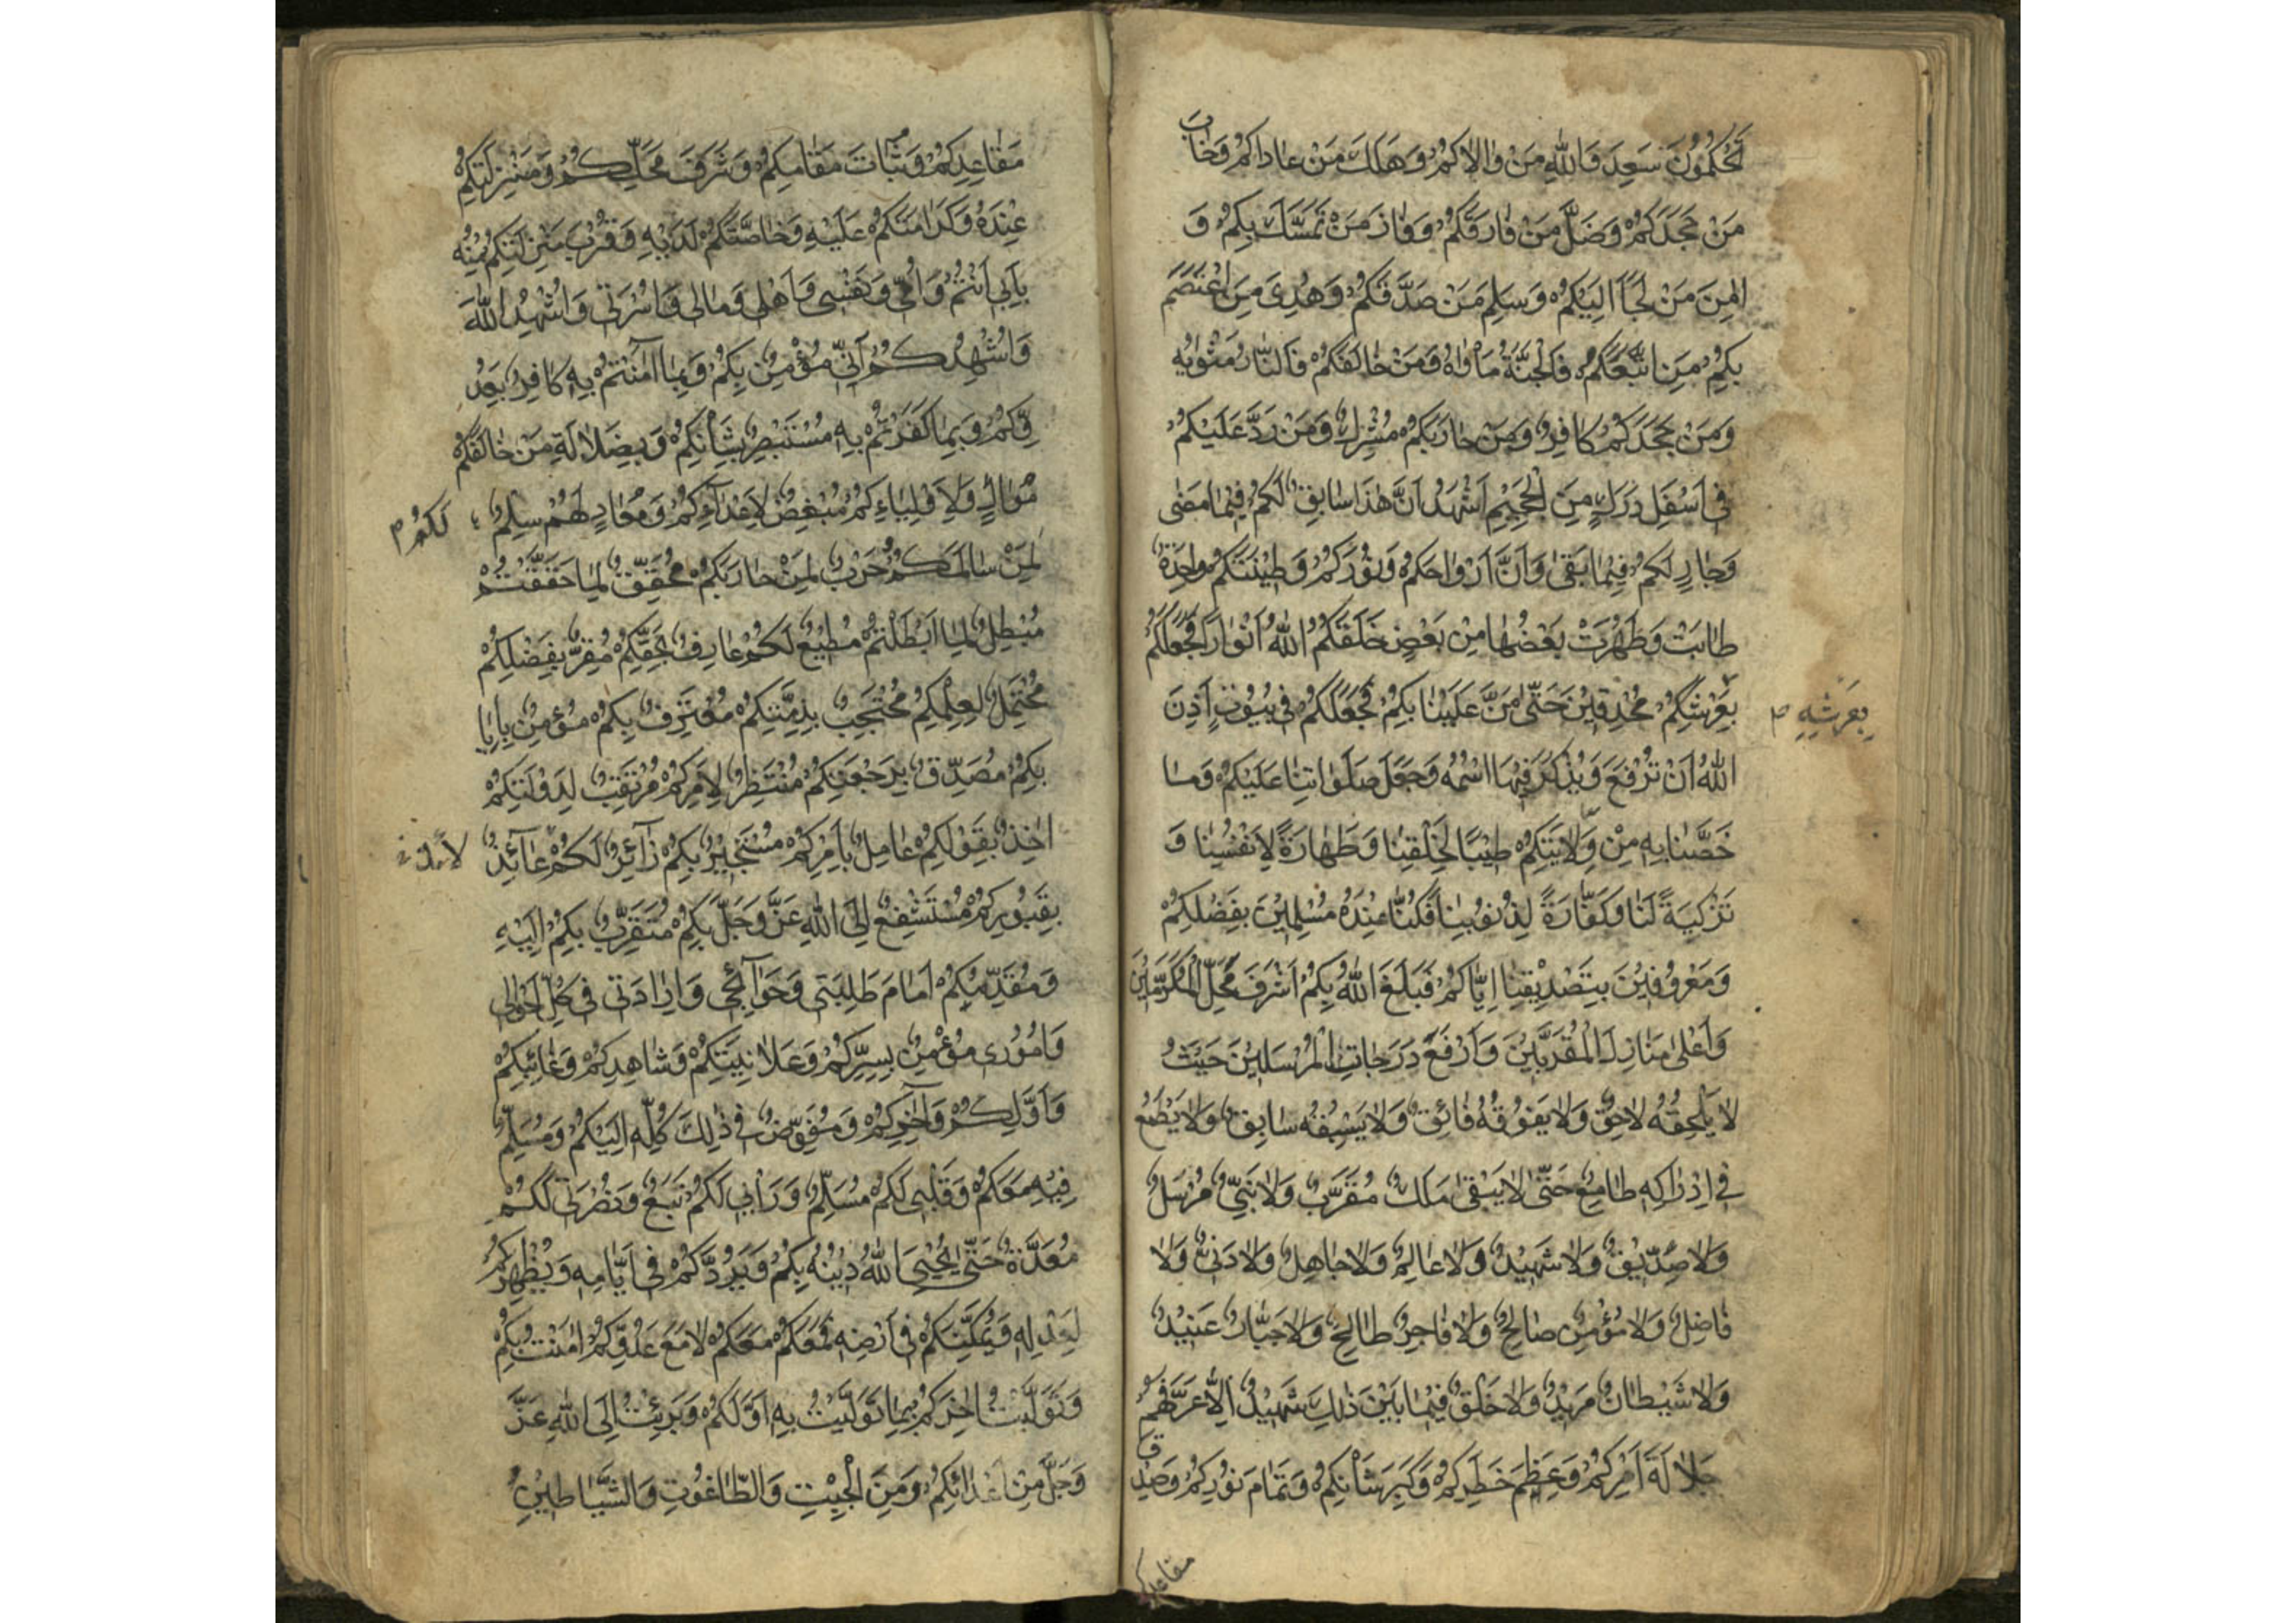 تَحْكُمُونَ سَعِدَ وَاللهِ مَنْ وٰالاٰكُمْ وَهَلَكَ مَنْ عٰاداٰكُمْ وَخٰابَ
مَنْ جَحَدَكُمْ وَضَلَّ مَنْ فٰارَقَكُمْ وَفٰازَ مَنْ تَمَسَّكَ بِكُمْ وَ
اٰمِنَ مَنْ لَجَأَ اِلَيْكُمْ وَسَلِمَ مَنْ صَدَّقَكُمْ وَهُدِىَ مَنِ اعْتَصَمَ
بِكُمْ مَنِ اتَّبَعَكُمْ فَالْجَنَّةُ مَأْوٰاهُ وَمَنْ خٰالَفَكُمْ فَالنّٰارُ مَثْوٰيهُ
وَمَنْ جَحَدَكُمْ كٰافِرٌ وَمَنْ حٰارَبَكُمْ مُشْرِكٌ وَمَنْ رَدَّ عَلَيْكُمْ
فى اَسْفَلِ دَرَكٍ مِنَ الْجَحِيْمِ اَشْهَدُ اَنَّ هٰذَا سٰابِقٌ لَكُمْ فِيْمٰا مَضٰى
وَجٰارٍ لَكُمْ فِيْمٰا بَقٰى وَاَنَّ اَرْوٰاحَكُمْ وَنُوْرَكُمْ وَطِيْنَتَكُمْ وٰاحِدَةٌ
طٰابَتْ وَطَهُرَتْ بَعْضُهٰا مِنْ بَعْضٍ خَلَقَكُمُ اللهُ اَنْوٰاراً فَجَعَلَكُمْ
بِعَرْشِكُمْ مُحْدِقِيْنَ حَتّٰى مَنَّ عَلَيْنٰا بِكُمْ فَجَعَلَكُمْ فى بُيُوْتٍ اَذِنَ
بِعَرْشِهِ م
اللهُ اَنْ تُرْفَعَ وَيُذْكَرَ فِيْهَا اسْمُهُ وَجَعَلَ صَلَوٰاتِنٰا عَلَيْكُمْ وَمٰا
خَصَّنٰا بِهِ مِنْ وِلاٰيَتِكُمْ طِيْبًا لِخَلْقِنٰا وَطَهٰارَةً لِاَنْفُسِنٰا وَ
تَزْكِيَةً لَنٰا وَكَفّٰارَةً لِذُنُوْبِنٰا فَكُنّٰا عِنْدَهُ مُسْلِمِيْنَ بِفَضْلِكُمْ
وَمَعْرُوْفِيْنَ بِتَصْدِيْقِنٰا اِيّٰاكُمْ فَبَلَغَ اللهُ بِكُمْ اَشْرَفَ مَحَلِّ الْمُكَرَّمِيْنَ
وَاَعْلٰى مَنٰازِلَ الْمُقَرَّبِيْنَ وَاَرْفَعَ دَرَجٰاتِ الْمُرْسَلِيْنَ حَيْثُ
لاٰ يَلْحَقُهُ لاٰحِقٌ وَلاٰ يَفُوْقُهُ فٰائِقٌ وَلاٰ يَسْبِقُهُ سٰابِقٌ وَلاٰ يَطْمَعُ
فى اِدْرٰاكِهِ طٰامِعٌ حَتّٰى لاٰ يَبْقٰى مَلَكٌ مُقَرَّبٌ وَلاٰ نَبِىٌّ مُرْسَلٌ
وَلاٰ صِدّيْقٌ وَلاٰ شَهِيْدٌ وَلاٰ عٰالِمٌ وَلاٰ جٰاهِلٌ وَلاٰ دَنِىٌّ وَلاٰ
فٰاضِلٌ وَلاٰ مُؤْمِنٌ صٰالِحٌ وَلاٰ فٰاجِرٌ طٰالِحٌ وَلاٰ جَبّٰارٌ عَنِيْدٌ
وَلاٰ شَيْطٰانٌ مَرِيْدٌ وَلاٰ خَلْقٌ فِيْمٰا بَيْنَ ذٰلِكَ شَهِيْدٌ اِلاّٰ عَرَّفَهُمْ
جَلاٰلَةَ اَمْرِكُمْ وَعِظَمَ خَطَرِكُمْ وَكِبَرَ شَأْنِكُمْ وَتَمٰامَ نُوْرِكُمْ وَصِدْقَ
مقاعدكم
مَقٰاعِدِكُمْ وَثَبٰاتَ مَقٰامِكُمْ وَشَرَفَ مَحَلِّكُمْ وَمَنْزِلَتِكُمْ
عِنْدَهُ وَكَرٰامَتَكُمْ عَلَيْهِ وَخٰاصَّتَكُمْ لَدَيْهِ وَقُرْبَ مَنْزِلَتِكُمْ مِنْهُ
بِاَبى اَنْتُمْ وَاُمّى وَنَفْسى وَاَهْلى وَمٰالى وَاُسْرَتى وَاُشْهِدُ اللهَ
وَاُشْهِدُكُمْ اَنّى مُؤْمِنٌ بِكُمْ وَبِمٰا اٰمَنْتُمْ بِهِ كٰافِرٌ بِعَدُ
وِّكُمْ وَبِمٰا كَفَرْتُمْ بِهِ مُسْتَبْصِرٌ بِشَأْنِكُمْ وَبِضَلاٰلَةِ مَنْ خٰالَفَكُمْ
مُوٰالٍ وَلِاَوْلِيٰاءِكُمْ مُبْغِضٌ لِاَعْدٰآءِكُمْ وَمُعٰادٍ لَهُمْ سِلْمٌ
لَكُمْ م
لِمَنْ سٰالَمَكُمْ حَرْبٌ لِمَنْ حٰارَبَكُمْ مُحَقِّقٌ لِمٰا حَقَّقْتُمْ
مُبْطِلٌ لِمٰا اَبْطَلْتُمْ مُطِيْعٌ لَكُمْ عٰارِفٌ بِحَقِّكُمْ مُقِرٌّ بِفَضْلِكُمْ
مُحْتَمِلٌ لِعِلْمِكُمْ مُحْتَجِبٌ بِذِمَّتِكُمْ مُعْتَرِفٌ بِكُمْ مُؤْمِنٌ بِاِيٰا
بِكُمْ مُصَدِّقٌ بِرَجْعَتِكُمْ مُنْتَظِرٌ لِاَمْرِكُمْ مُرْتَقِبٌ لِدَوْلَتِكُمْ
اٰخِذٌ بِقَوْلِكُمْ عٰامِلٌ بِاَمْرِكُمْ مُسْتَجِيْرٌ بِكُمْ زٰآئِرٌ لَكُمْ عٰآئِذٌ
بِقُبُوْرِكُمْ مُسْتَشْفِعٌ اِلَى اللهِ عَزَّ وَجَلَّ بِكُمْ مُتَقَرِّبٌ بِكُمْ اِلَيْهِ
وَمُقَدِّمُكُمْ اَمٰامَ طَلِبَتى وَحَوٰآئِجى وَاِرٰادَتى فى كُلِّ اَحْوٰالى
وَاُمُوْرى مُؤْمِنٌ بِسِرِّكُمْ وَعَلاٰنِيَتِكُمْ وَشٰاهِدِكُمْ وَغٰائِبِكُمْ
وَاَوَّلِكُمْ وَاٰخِرِكُمْ وَمُفَوِّضٌ فى ذٰلِكَ كُلِّهِ اِلَيْكُمْ وَمُسَلِّمٌ
فِيْهِ مَعَكُمْ وَقَلْبى لَكُمْ مُسَلِّمٌ وَرَأْيى لَكُمْ تَبَعٌ وَنُصْرَتى لَكُمْ
مُعَدَّةٌ حَتّٰى يُحْيِىَ اللهُ دِيْنَهُ بِكُمْ وَيَرُدَّكُمْ فى اَيّٰامِهِ وَيُظْهِرَكُمْ
لِعَدْلِهِ وَيُمَكِّنَكُمْ فى اَرْضِهِ فَمَعَكُمْ مَعَكُمْ لاٰ مَعَ عَدُوِّكُمْ اٰمَنْتُ بِكُمْ
وَتَوَلَّيْتُ اٰخِرَكُمْ بِمٰا تَوَلَّيْتُ بِهِ اَوَّلَكُمْ وَبَرِئْتُ اِلَى اللهِ عَزَّ
وَجَلَّ مِنْ اَعْدٰائِكُمْ وَمِنَ الْجِبْتِ وَالطّٰاغُوْتِ وَالشَّيٰاطِيْنِ